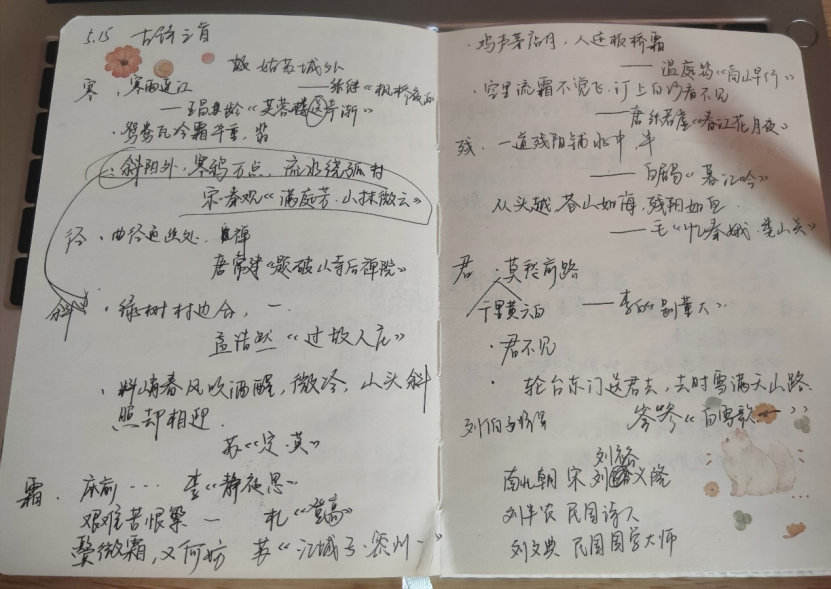 5.15 古诗之旨
故 姑苏城外
——张继《枫桥夜泊
寒，寒雨连江
——王昌龄《芙蓉楼送辛渐》
·鸳鸯瓦冷霜华重，翡
：斜阳外，寒鸦万点，流水绕孤村
宋·秦观《满庭芳·山抹微云》
径·曲径通幽处，禅
唐常建《题破山寺后禅院》
斜·绿树村边合，一
孟浩然《过故人庄》
·料峭春风吹酒醒，微冷，山头斜
照却相迎
苏《定·莫》
霜．床前… 李《静夜思》
艰难苦恨繁 一 杜《登高》
鬓微霜，又何妨 苏《江城子·密州一》
·鸡声茅店月，人迹板桥霜
——温庭筠《商山早行》
·空里流霜不觉飞，汀上白沙看不见
——唐张若虚《春江花月夜》
残．一道残阳铺水中 半
——白居易《暮江吟》
从头越，苍山如海，残阳如血
——毛《忆秦娥·娄山关》
君：莫愁前路
千里黄云白 ——李白 别董大》
·君不见
·轮台东门送君去，去时雪满天山路
岑参《白雪歌一》
刘裕
南北朝 宋 刘义隆
刘半农 民国诗人
刘文典 民国国学大师